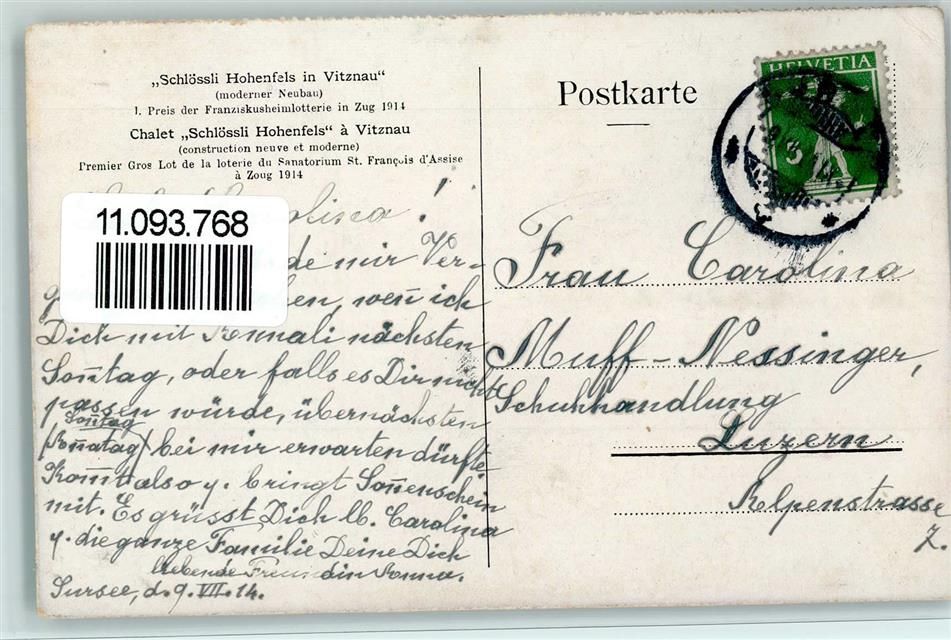 „Schlössli Hohenfels in Vitznau“
(moderner Neubau)
I. Preis der Franziskusheimlotterie in Zug 1914
Chalet „Schlössli Hohenfels“ à Vitznau
(construction neuve et moderne)
Premier Gros Lot de la loterie du Sanatorium St. François d'Assise
à Zoug 1914
Postkarte
HELVETIA
5
11.093.768
!
de mir Ver-
en, weñ ich
Dich mit Annali nächsten
Soñtag, oder falls es Dir nicht
passen würde, übernächsten
Soñtag
bei mir erwarten dürfte.
Kom̃t also u. bringt Soñenschein
mit. Es grüsst Dich lb. Carolina
u. die ganze Familie Deine Dich
liebende Freundin Anna.
Sursee, d. 9. VII. 14.
Frau Carolina
Muff-Nessinger,
Schuhhandlung
Luzern
Alpenstrasse
7.